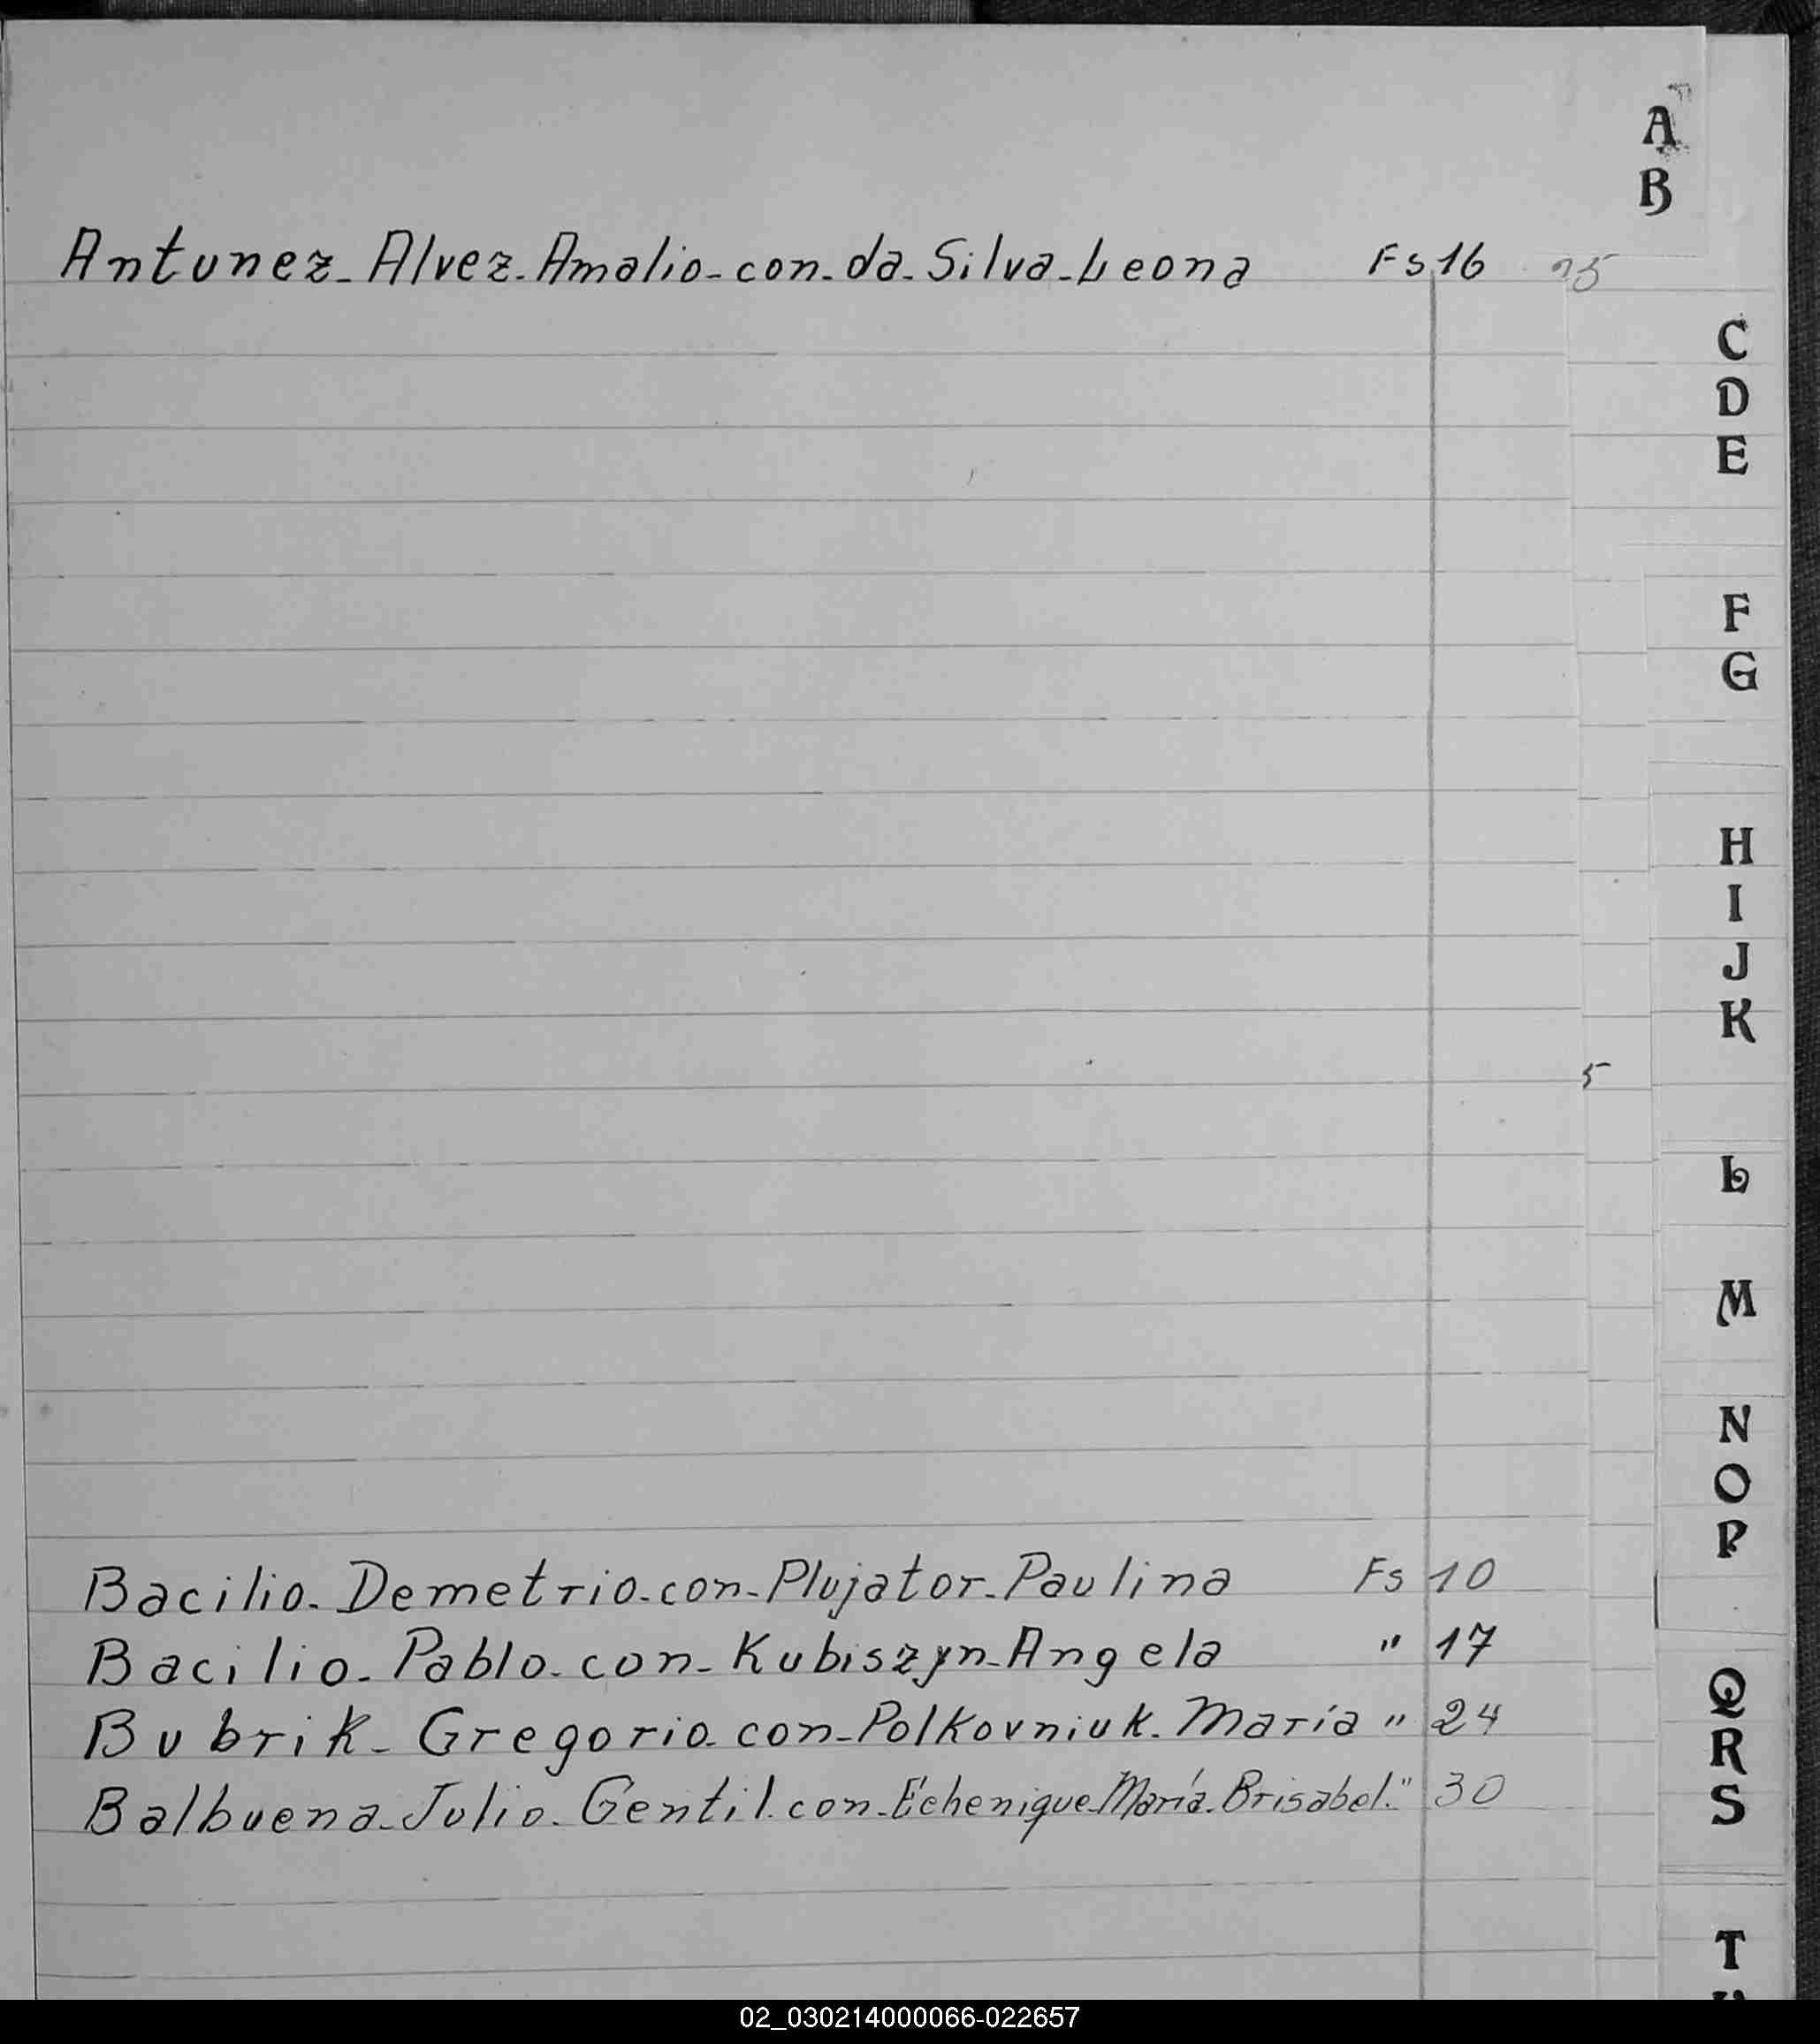 A
B
Antunez-Alvez-Amalio-con-da-Silva-Leona Fs 16
C
D
E
F
G
H
I
J
K
5
L
M
N
O
P
Bacilio-Demetrio-con-Plujator-Paulina Fs 10
Bacilio-Pablo-con-Kubiszyn-Angela " 17
Bubrik-Gregorio-con-Polkovniuk-María " 24
Balbuena-Julio-Gentil-con-Echenique-María-Brisabel-" 30
Q
R
S
T
02_030214000066-022657